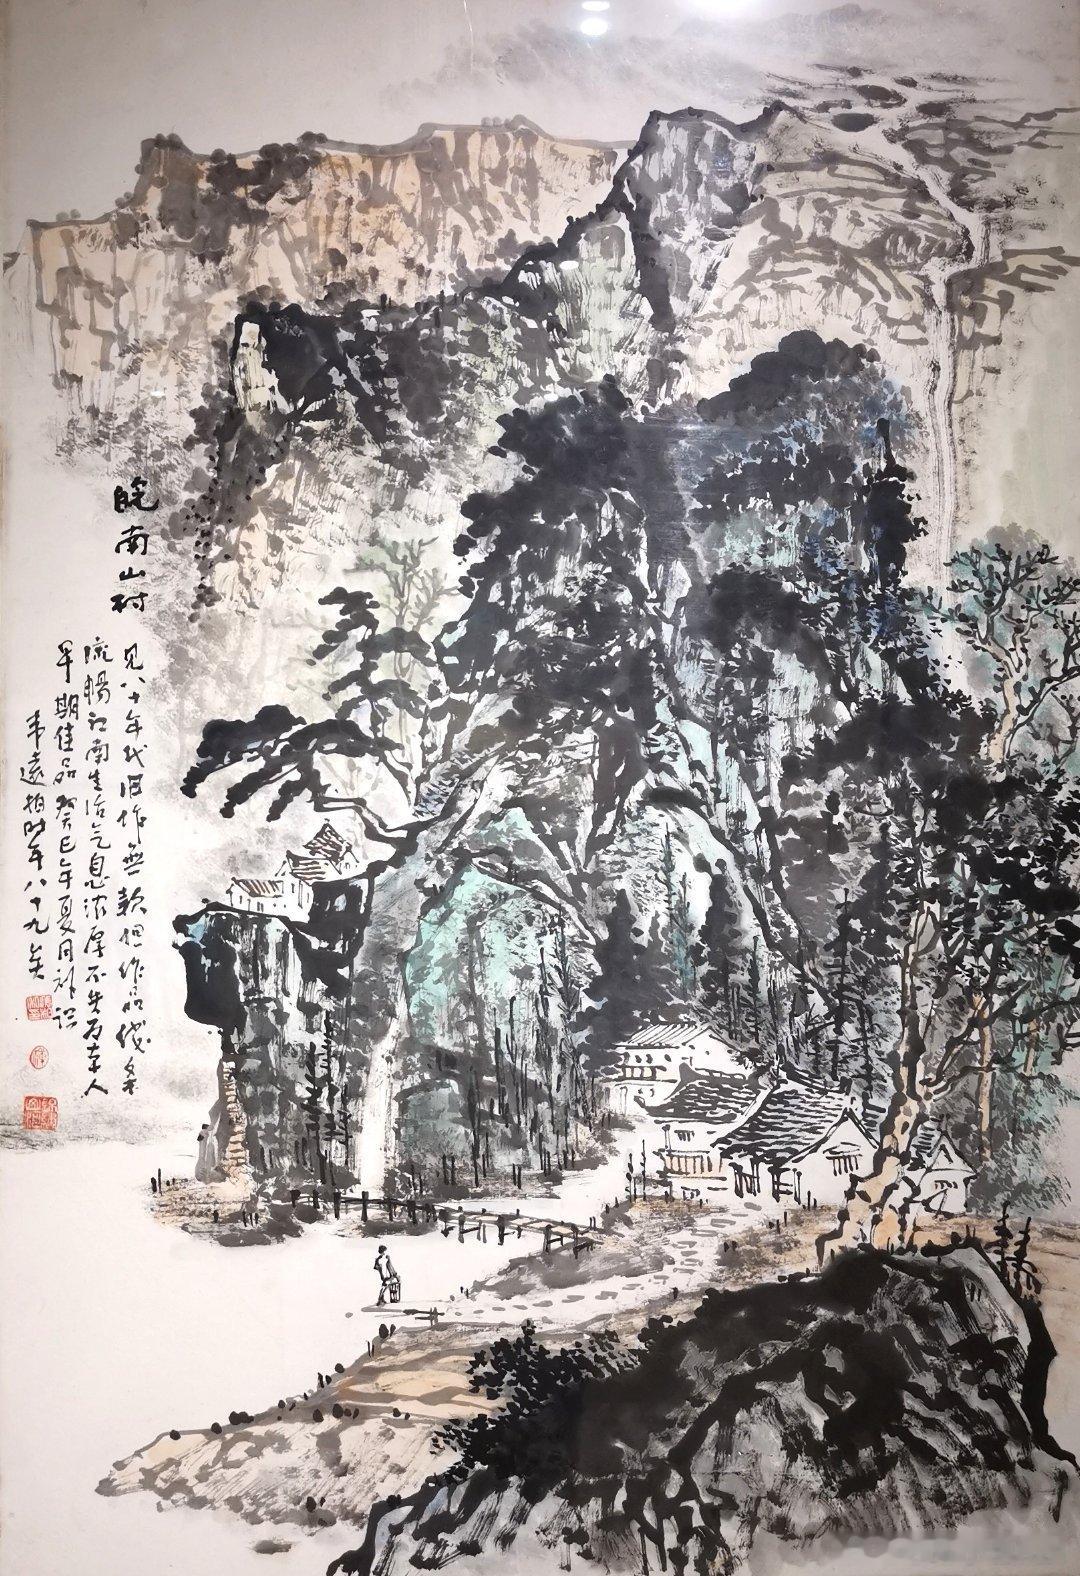 皖南山村
见八十年代旧作无款但作品线条
流畅江南生活气息浓厚不失为本人
早期佳品癸巳年夏月补识
韦远柏时年八十九矣